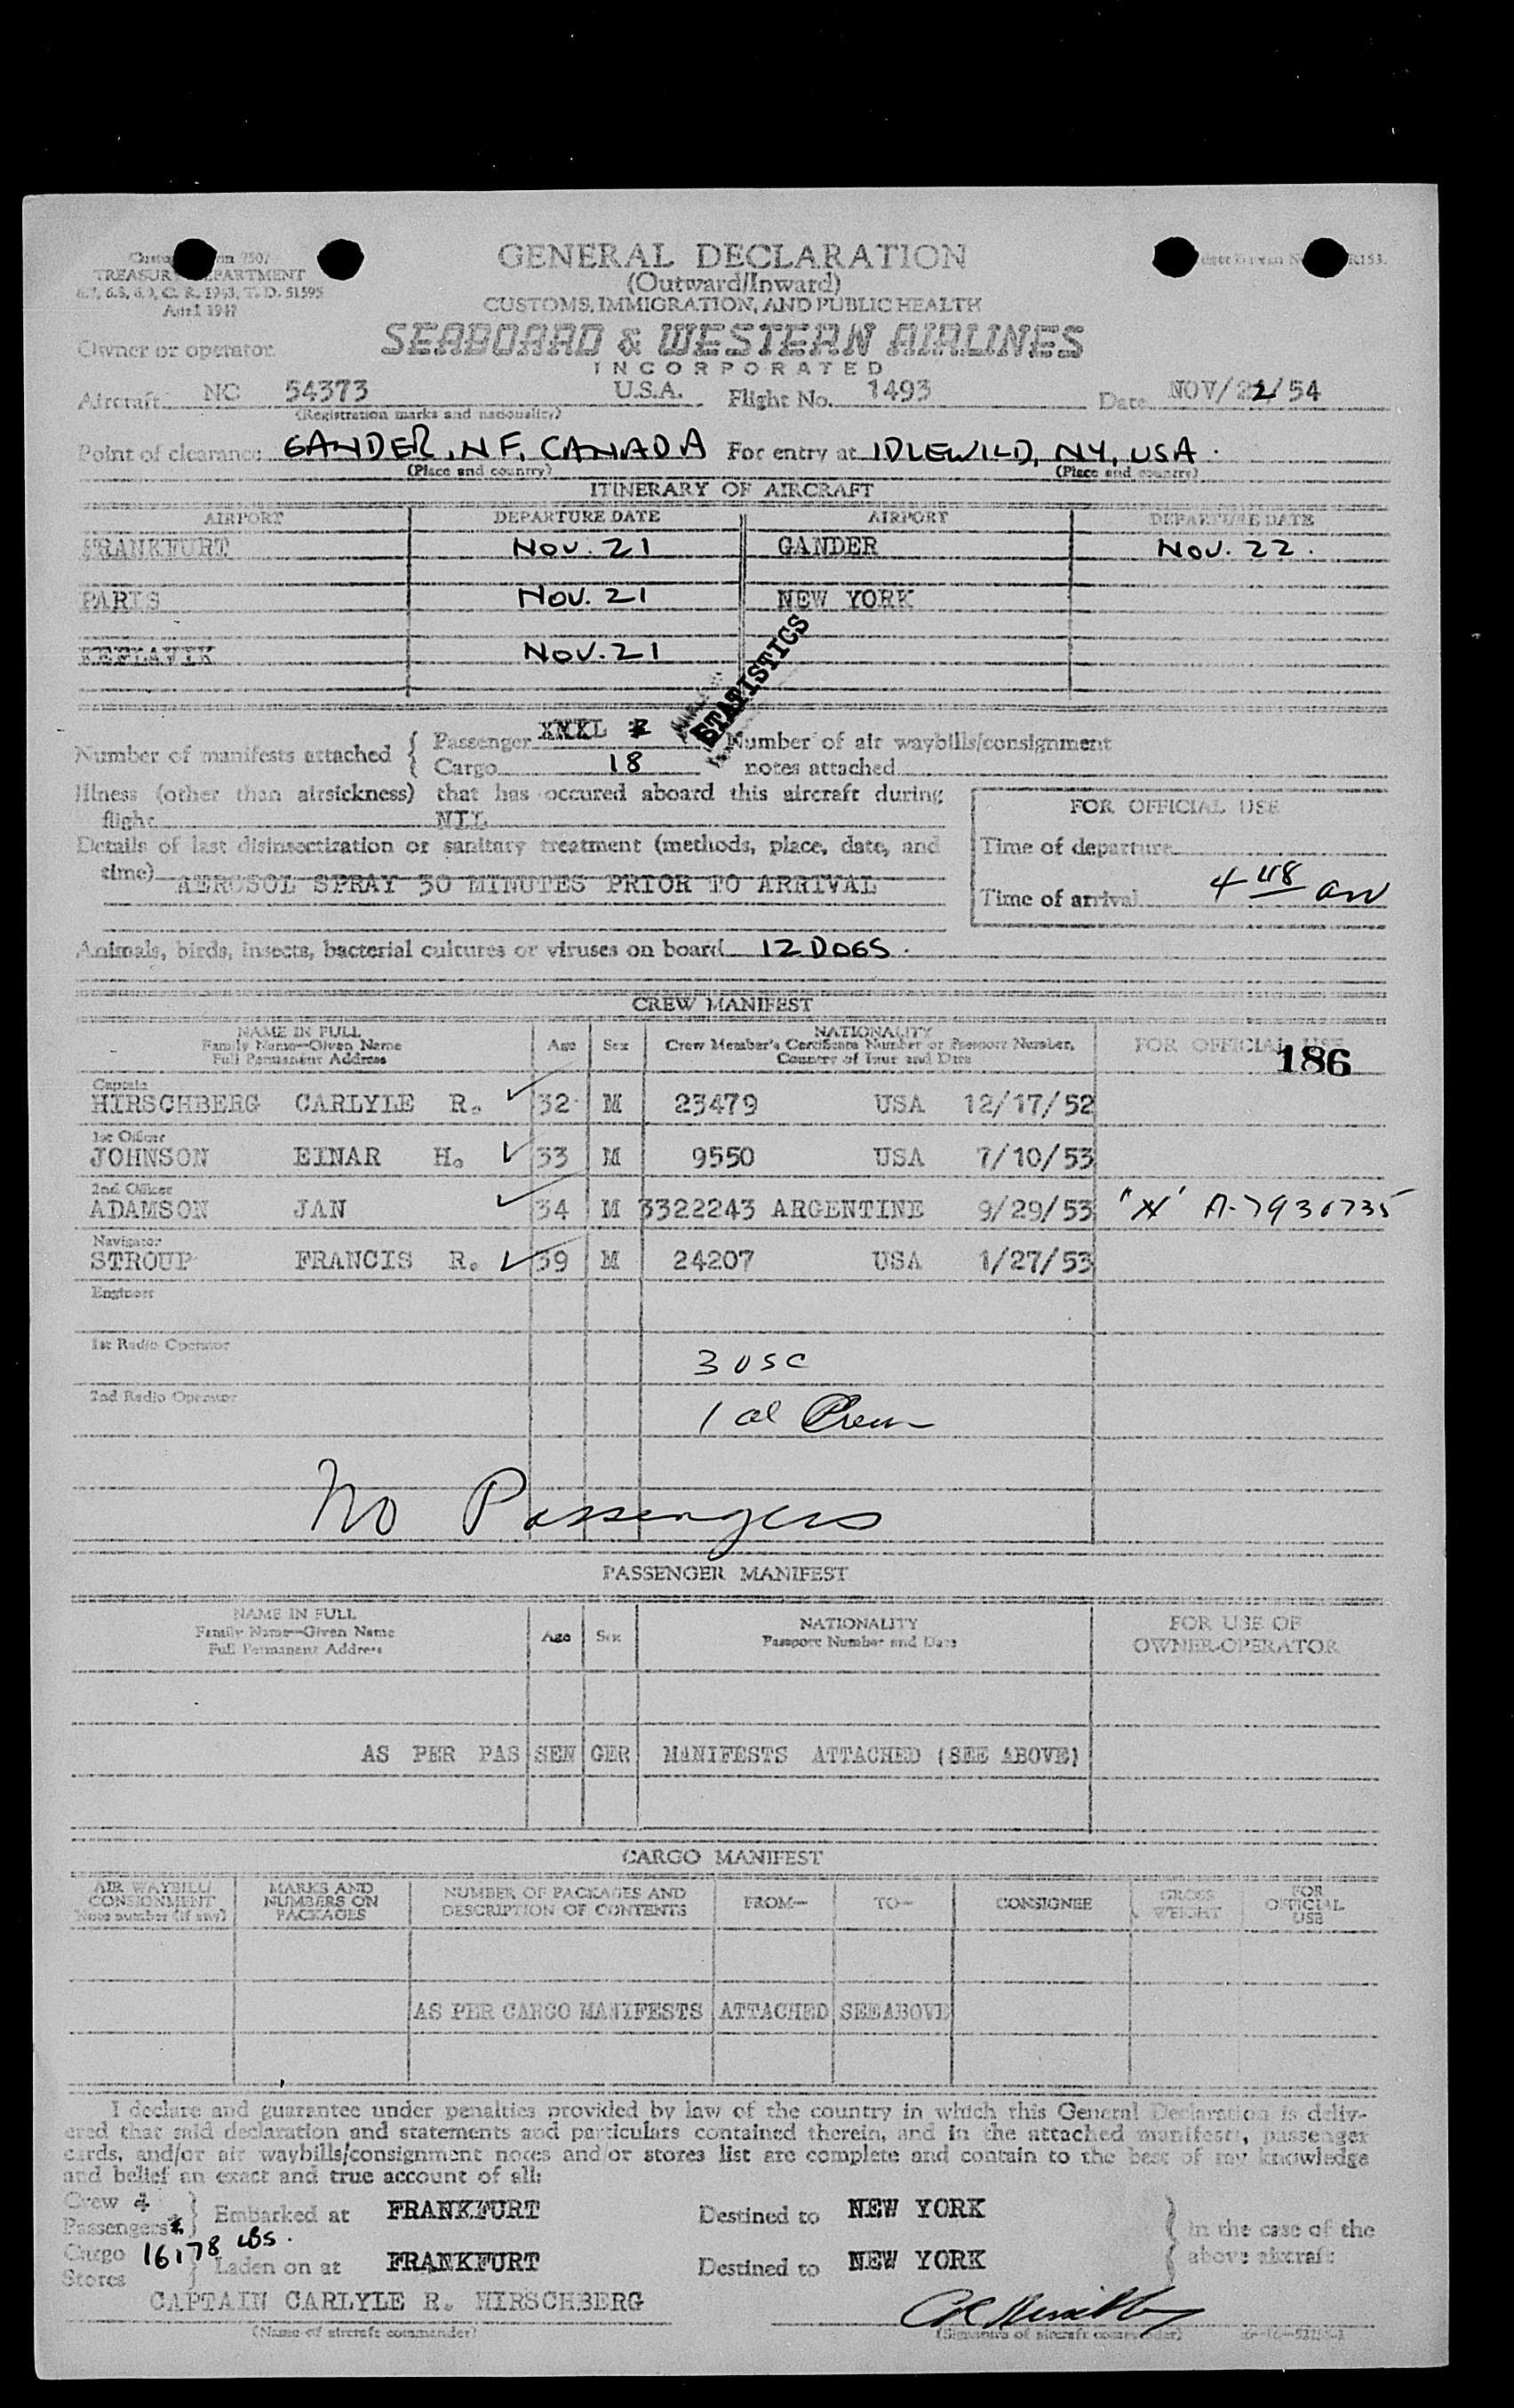 GENERAL DECLARATION
(Outward/Inward)
CUSTOMS, IMMIGRATION, AND PUBLIC HEALTH
TREASURY DEPARTMENT
April 1947
Owner or operator SEABOARD & WESTERN AIRLINES
INCORPORATED
Aircraft NC 54373 U.S.A. Flight No. 1493 Date NOV/22/54
(Registration marks and nationality)
Point of clearance GANDER, NF, CANADA For entry at IDLEWILD, NY, USA.
(Place and country) (Place and country)
ITINERARY OF AIRCRAFT
AIRPORT DEPARTURE DATE AIRPORT DEPARTURE DATE
FRANKFURT NOV. 21 GANDER NOV. 22.
PARIS NOV. 21 NEW YORK
KEFLAVIK NOV. 21
STATISTICS
Number of manifests attached { Passenger
Cargo 18
Number of air waybills/consignment
notes attached
Illness (other than airsickness) that has occured aboard this aircraft during
flight NIL
Details of last disinsectization or sanitary treatment (methods, place, date, and
time) AEROSOL SPRAY 30 MINUTES PRIOR TO ARRIVAL
FOR OFFICIAL USE
Time of departure
Time of arrival 4 48 am
Animals, birds, insects, bacterial cultures or viruses on board 12 DOGS.
CREW MANIFEST
NAME IN FULL
Family Name—Given Name
Full Permanent Address
Age Sex
NATIONALITY
Crew Member's Certificate Number or Passport Number,
Country of Issue and Date
FOR OFFICIAL USE
186
Captain
HIRSCHBERG CARLYLE R. 32 M 23479 USA 12/17/52
1st Officer
JOHNSON EINAR H. 33 M 9550 USA 7/10/53
2nd Officer
ADAMSON JAN 34 M 3322243 ARGENTINE 9/29/53 A-7936735
Navigator
STROUP FRANCIS R. 39 M 24207 USA 1/27/53
Engineer
1st Radio Operator
3 USC
2nd Radio Operator
1 al Crew
No Passengers
PASSENGER MANIFEST
NAME IN FULL
Family Name—Given Name
Full Permanent Address
Age Sex
NATIONALITY
Passport Number and Date
FOR USE OF
OWNER-OPERATOR
AS PER PASSENGER MANIFESTS ATTACHED (SEE ABOVE)
CARGO MANIFEST
AIR WAYBILL/
CONSIGNMENT
Note number (if any)
MARKS AND
NUMBERS ON
PACKAGES
NUMBER OF PACKAGES AND
DESCRIPTION OF CONTENTS
FROM— TO— CONSIGNEE
GROSS
WEIGHT
FOR
OFFICIAL
USE
AS PER CARGO MANIFESTS ATTACHED SEE ABOVE
I declare and guarantee under penalties provided by law of the country in which this General Declaration is deliv-
ered that said declaration and statements and particulars contained therein, and in the attached manifests, passenger
cards, and/or air waybills/consignment notes and/or stores list are complete and contain to the best of my knowledge
and belief an exact and true account of all:
Crew 4
Passengers
Embarked at FRANKFURT Destined to NEW YORK
Cargo 16178 LBS.
Stores
Laden on at FRANKFURT Destined to NEW YORK
In the case of the
above aircraft
CAPTAIN CARLYLE R. HIRSCHBERG
(Name of aircraft commander) (Signature of aircraft commander)